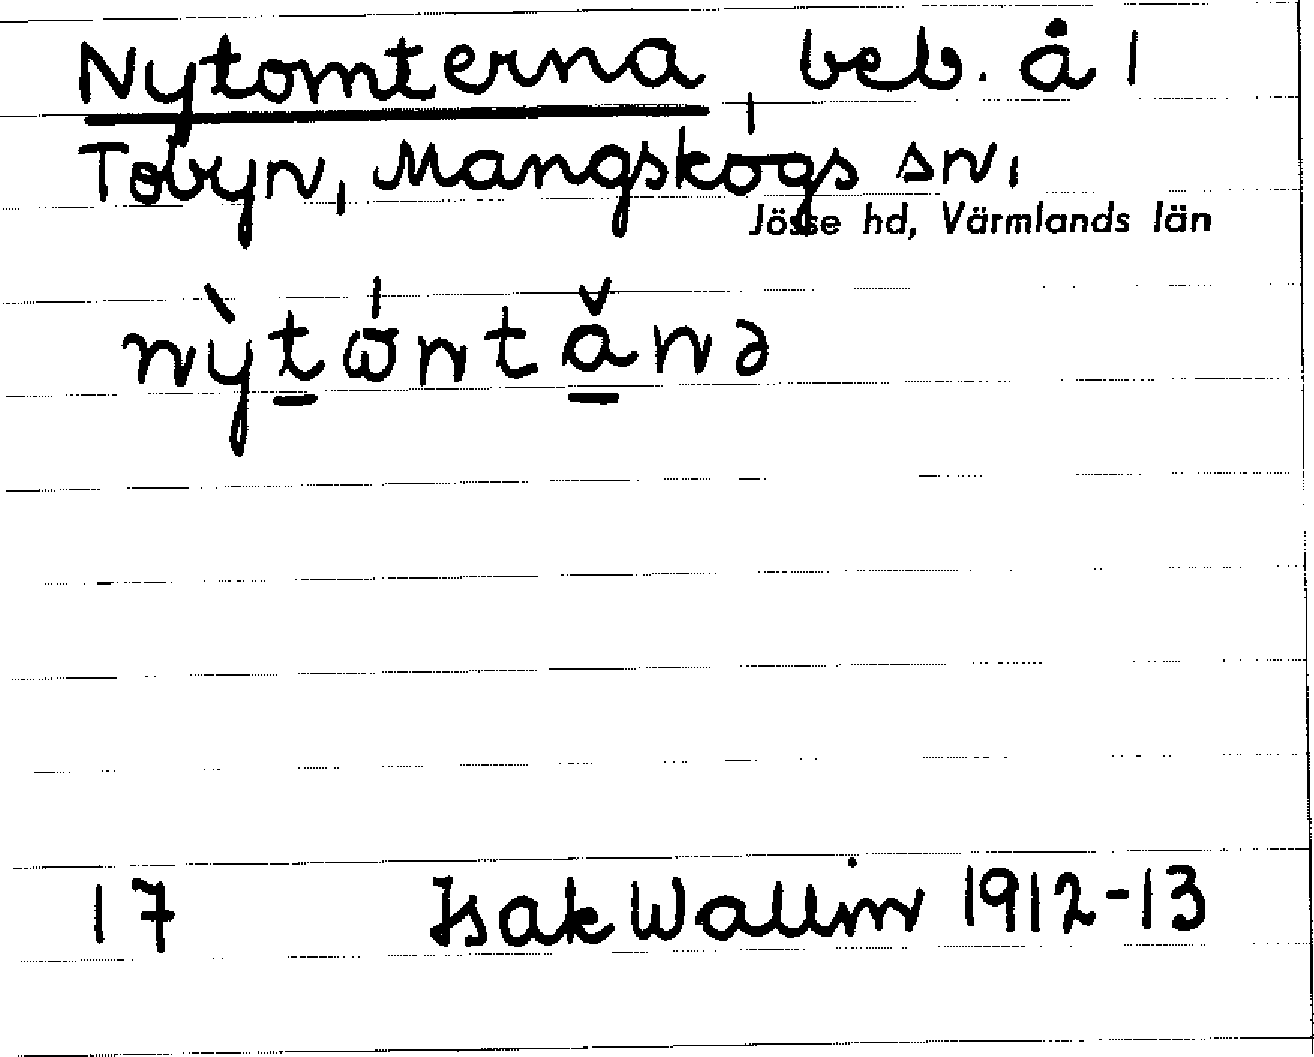 Nytomterna, beb. å 1
Tobyn, Mangskogs sn,
Jösse hd, Värmlands län
nỳt̲ώntǎ̲nə
17 Isak Wallin 1912-13